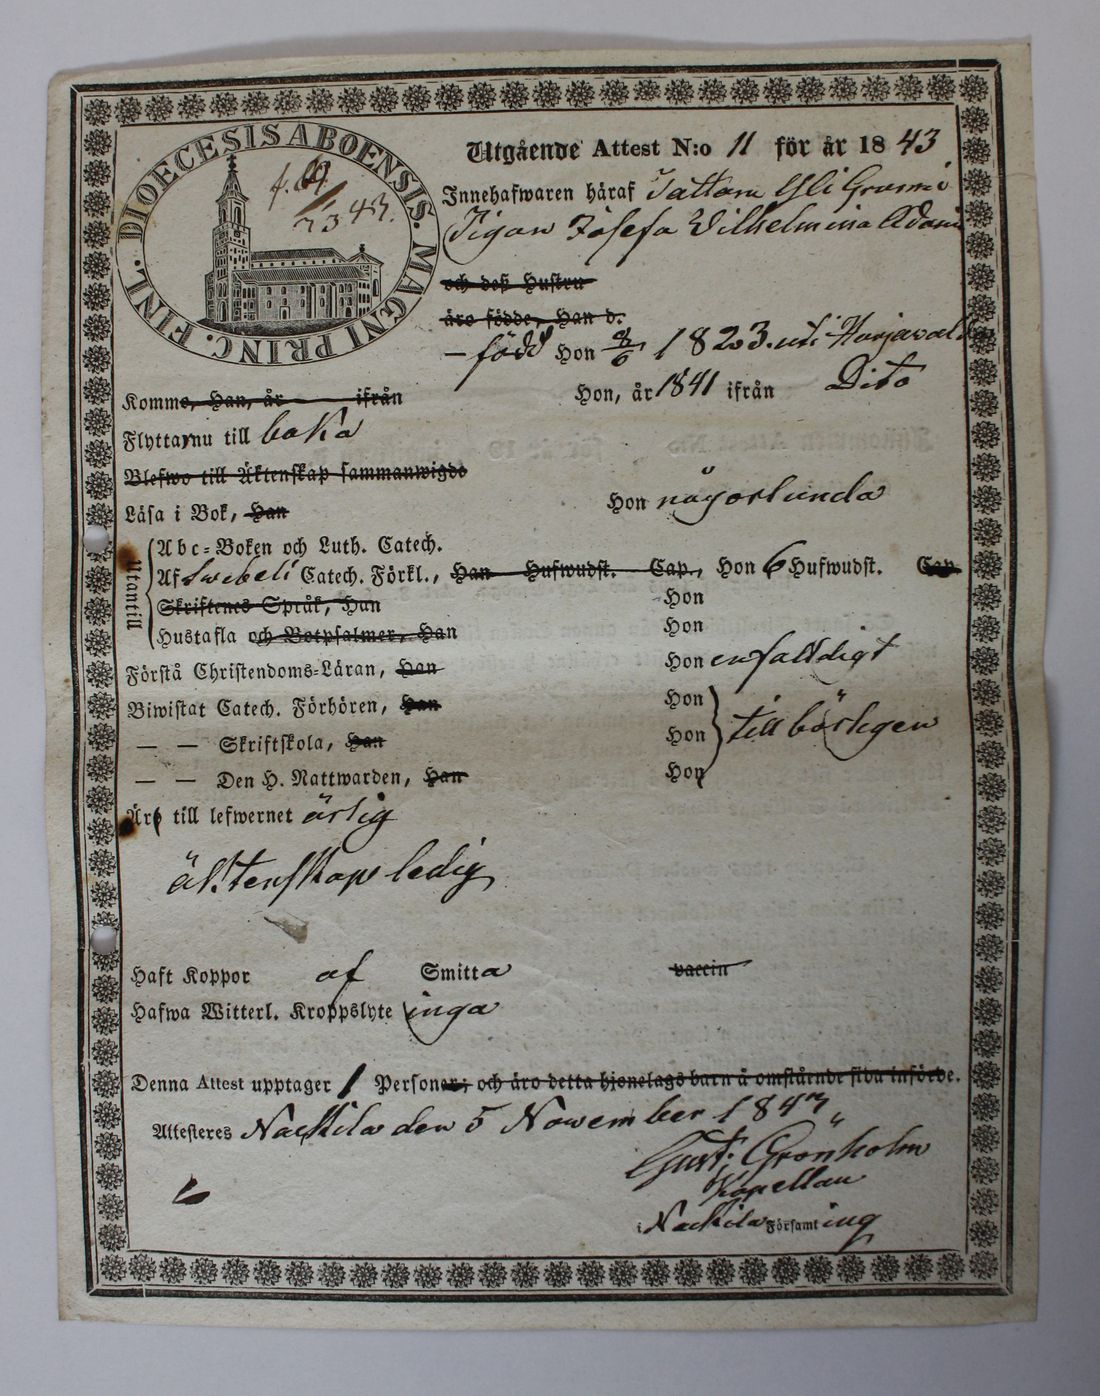 DIOECESIS ABOENSIS. MAGNI PRINC. FINL.
Utgående Attest N:o 11 för år 1843
Innehafwaren häraf Tattara Ysli Granni
Pigan Josefa Vilhelmina Adami
och deß Hustru
äro födde, Han d.
— född Hon 1823. uti Harjavalla
Komme, Han, år ifrån Hon, år 1841 ifrån Dito
Flyttar nu till
Blefwo till Äktenskap sammanwigde
Läsa i Bok, Han Hon någorlunda
Utantill
Abc-Boken och Luth. Catech.
Af Swebeli Catech. Förkl., Han Hufwudst. Cap., Hon 6 Hufwudst. Cap.
Skriftenes Språk, Han Hon
Hustafla och Botpsalmer, Han Hon
Förstå Christendoms-Läran, Han Hon enfaldigt
Biwistat Catech. Förhören, Han Hon
— — Skriftskola, Han Hon till börligen
— — Den H. Nattwarden, Han Hon
Äro till lefwernet ärlig
äktenskaps ledig
Haft Koppor af Smitta vaccin
Hafwa Witterl. Kroppslyte inga
Denna Attest upptager 1 Personer; och äro detta hjonelags barn å omstående sida införde.
Attesteras Nackila den 5 November 1843
Gust. Grönholm
Kapellan
i Nackila Församling